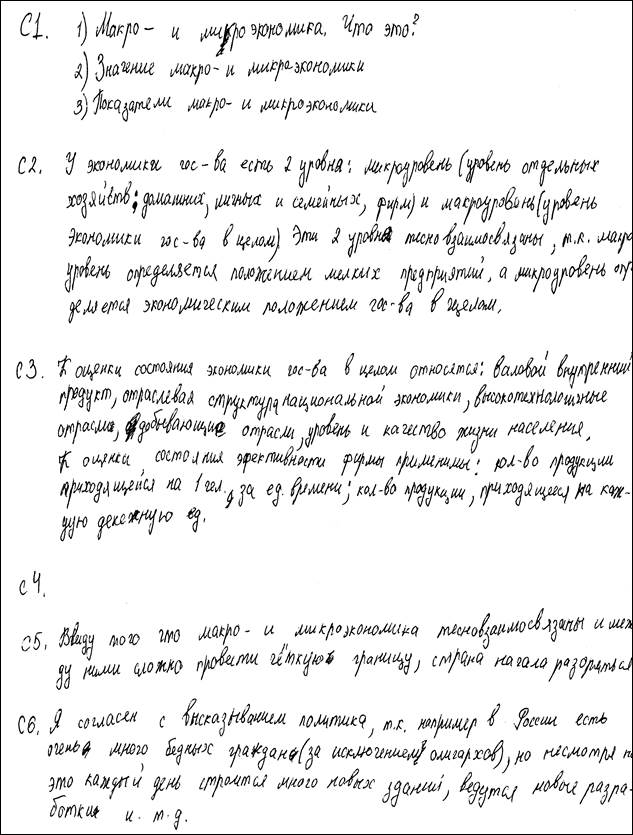 С1. 1) Макро- и микроэкономика. Что это?
2) Значение макро- и микроэкономики
3) Показатели макро- и микроэкономики
С2. У экономики гос-ва есть 2 уровня: микроуровень (уровень отдельных
хозяйств; домашних, личных и семейных, фирм) и макроуровань (уровень
экономики гос-ва в целом) Эти 2 уровня тесновзаимосвязаны, т.к. макро
уровень определяется положением мелких предприятий, а микроуровень опре
деляется экономическим положением гос-ва в целом.
С3. К оценки состояния экономики гос-ва в целом относятся: валовой внутренний
продукт, отраслевая структура национальной экономики, высокотехнологичные
отрасли, добывающие отрасли, уровень и качество жизни населения.
К оценки состояния эфективности фирмы применимы: кол-во продукции
приходящейся на 1 чел. за ед. времени; кол-во продукции, приходящееся на каж-
дую денежную ед.
С4.
С5. Ввиду того что макро- и микроэкономика тесновзаимосвязаны и меж
ду ними сложно провести чёткую границу, страна начала разоряться
С6. Я согласен с высказыванием политика, т.к. например в России есть
очень много бедных граждан (за исключением олигархов), но несмотря на
это каждый день строится много новых зданий, ведутся новые разра-
ботки и т.д.